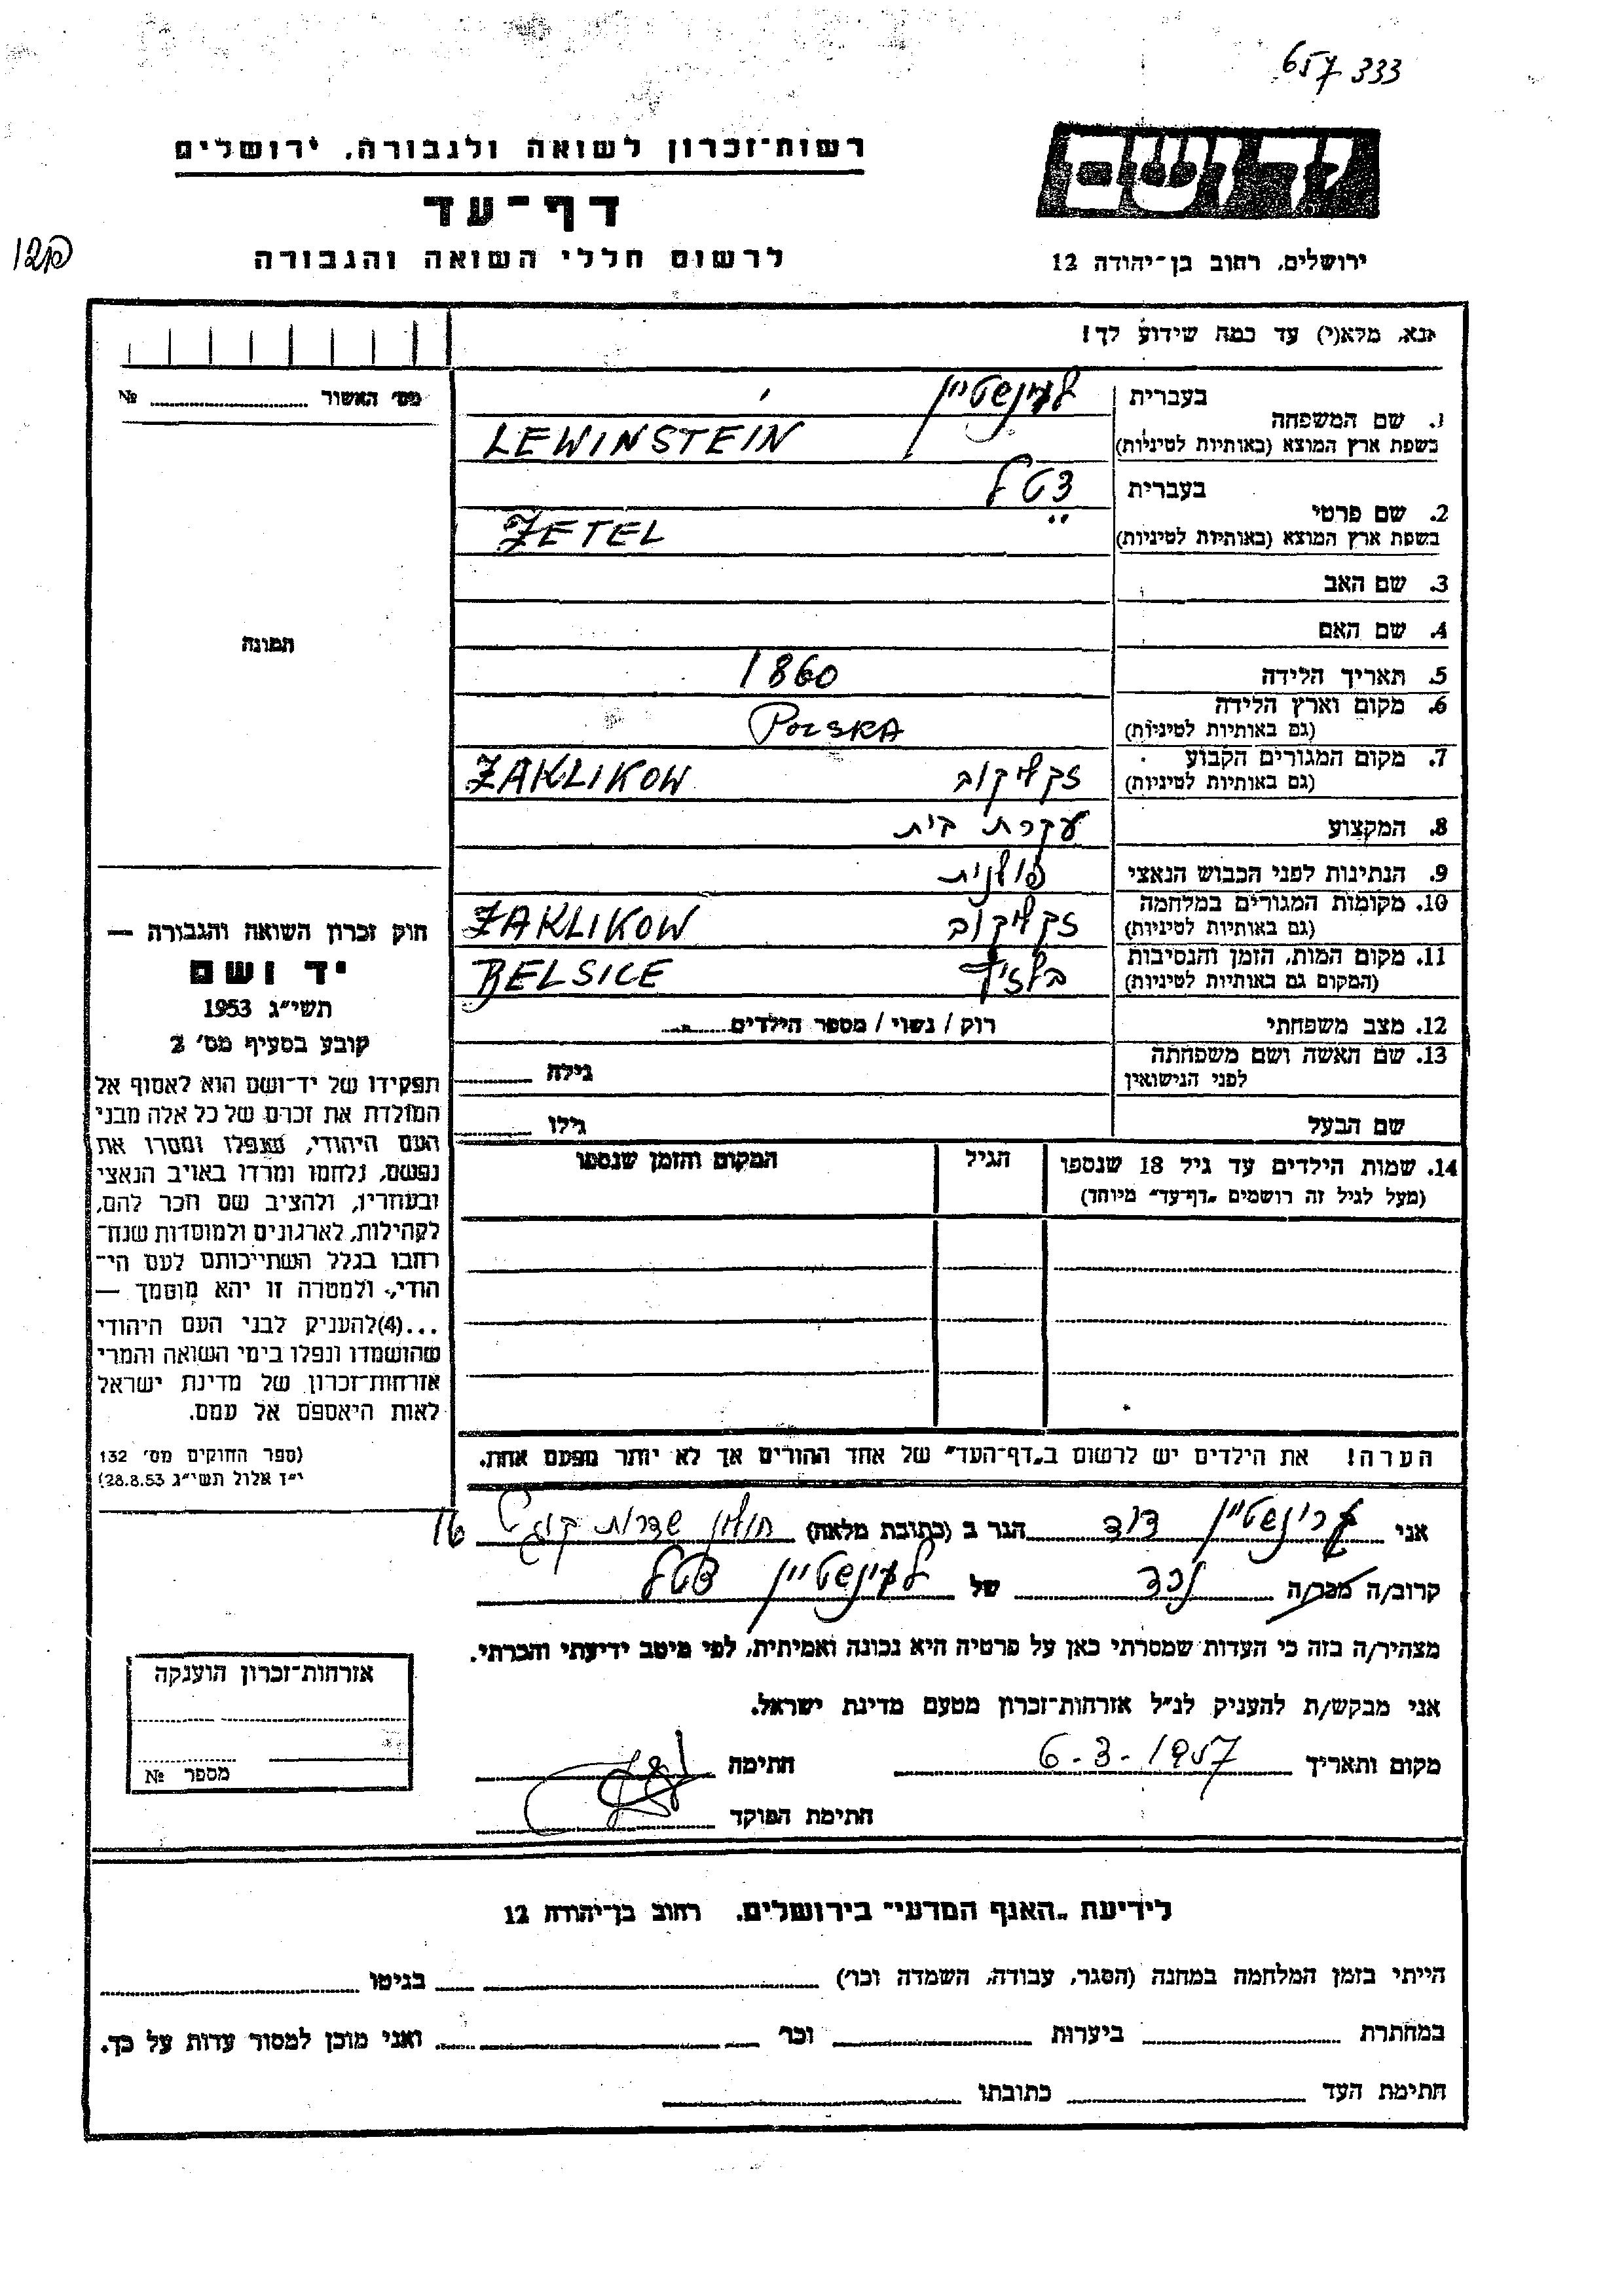 657333
רשות־זכרון לשואה ולגבורה, ירושלים
יד ושם
דף־עד
לרשום חללי השואה והגבורה
ירושלים, רחוב בן־יהודה 12
נא, מלא(י) עד כמה שידוע לך!
מס׳ האשור № 
1. שם המשפחה
בעברית לוינשטיין
בשפת ארץ המוצא (באותיות לטיניות) LEWINSTEIN
2. שם פרטי
בעברית צטל
בשפת ארץ המוצא (באותיות לטיניות) ZETEL
3. שם האב
4. שם האם
תמונה
5. תאריך הלידה 1860
6. מקום וארץ הלידה POLSKA
(גם באותיות לטיניות)
7. מקום המגורים הקבוע זקליקוב ZAKLIKOW
(גם באותיות לטיניות)
8. המקצוע עקרת בית
9. הנתינות לפני הכבוש הנאצי פולנית
10. מקומות המגורים במלחמה זקליקוב ZAKLIKOW
(גם באותיות לטיניות)
11. מקום המות, הזמן והנסיבות BELSICE
(המקום גם באותיות לטיניות)
12. מצב משפחתי רוק / נשוי / מספר הילדים
13. שם האשה ושם משפחתה גילה
לפני הנישואין
שם הבעל גילו
14. שמות הילדים עד גיל 18 שנספו הגיל המקום והזמן שנספו
(מעל לגיל זה רושמים „דף־עד״ מיוחד)
הערה! את הילדים יש לרשום ב„דף־העד״ של אחד ההורים אך לא יותר מפעם אחת.
חוק זכרון השואה והגבורה —
יד ושם
תשי״ג 1953
קובע בסעיף מס׳ 2
תפקידו של יד־ושם הוא לאסוף אל
המולדת את זכרם של כל אלה מבני
העם היהודי, שנפלו ומסרו את
נפשם, נלחמו ומרדו באויב הנאצי
ובעוזריו, ולהציב שם וזכר להם,
לקהילות, לארגונים ולמוסדות שנח־
רבו בגלל השתייכותם לעם הי־
הודי, ולמטרה זו יהא מוסמך —
...(4)להעניק לבני העם היהודי
שהושמדו ונפלו בימי השואה והמרי
אזרחות־זכרון של מדינת ישראל
לאות היאספם אל עמם.
(ספר החוקים מס׳ 132
י״ז אלול תשי״ג 28.8.53)
אני לוינשטיין דוד הגר ב (כתובת מלאה) חולון שדרות קוגל 16
קרוב/ה מכר/ה נכד של לוינשטיין צטל
מצהיר/ה בזה כי העדות שמסרתי כאן על פרטיה היא נכונה ואמיתית, לפי מיטב ידיעתי והכרתי.
אני מבקש/ת להעניק לנ״ל אזרחות־זכרון מטעם מדינת ישראל.
מקום ותאריך 6-3-1957 חתימה
חתימת הפוקד
אזרחות־זכרון הוענקה
מספר №
לידיעת „האגף המדעי״ בירושלים, רחוב בן־יהודה 12
הייתי בזמן המלחמה במחנה (הסגר, עבודה, השמדה וכו׳) בגיטו
במחתרת ביערות וכו׳ ואני מוכן למסור עדות על כך.
חתימת העד כתובתו